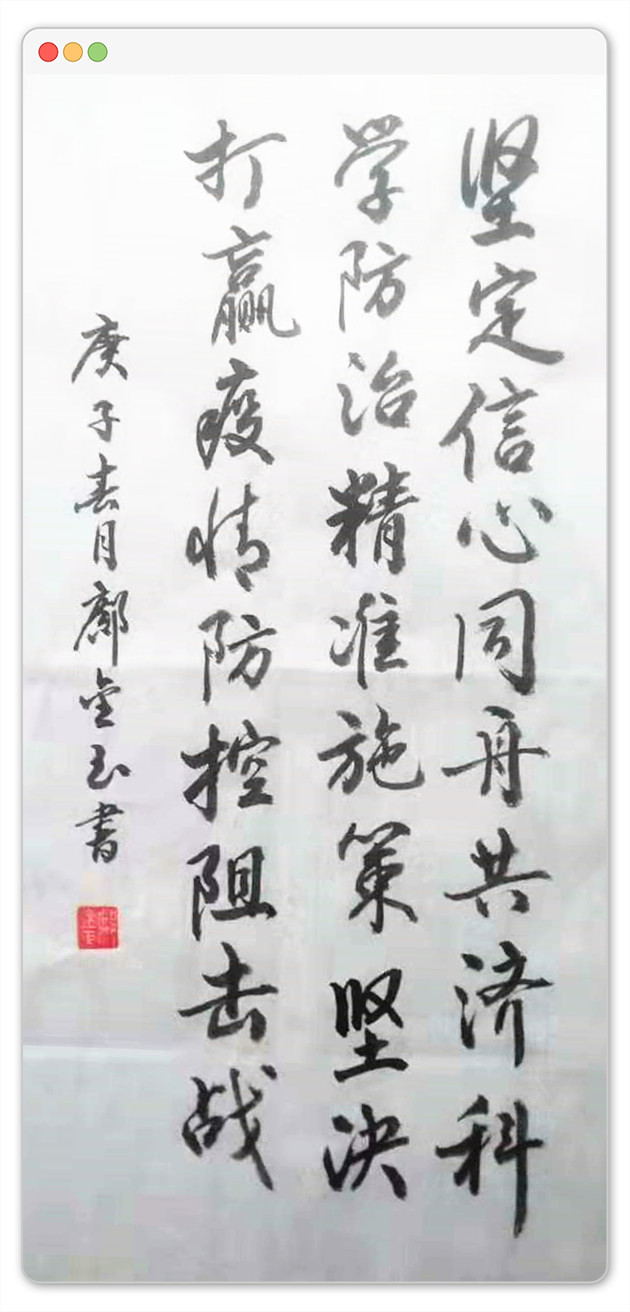 坚定信心同舟共济科
学防治精准施策坚决
打赢疫情防控阻击战
庚子春月鄺金玉書